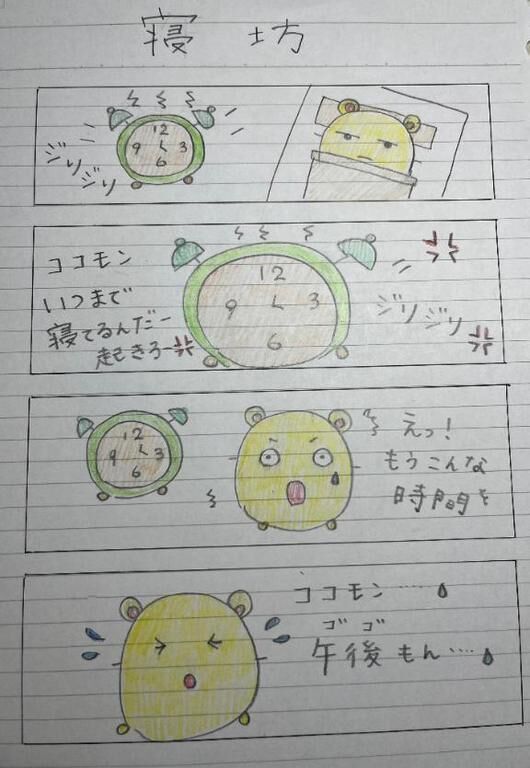 寝坊
12
9 3
6
ジリジリ
ココモン
いつまで
寝てるんだー
起きろー
12
9 3
6
ジリジリ
12
9 3
6
えっ!
もうこんな
時間
ココモン……
ゴゴ
午後もん……